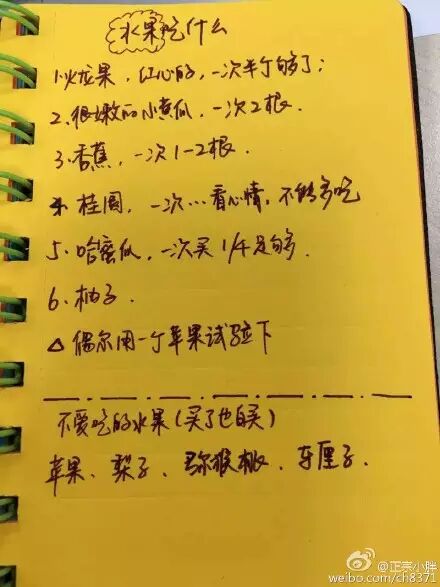 水果吃什么
1.火龙果，红心的，一次半个够了；
2.很嫩的小黄瓜，一次2根.
3.香蕉，一次1-2根.
4.桂圆，一次…看心情，不能多吃
5.哈蜜瓜，一次买1/4足够.
6.柚子.
△偶尔用一个苹果试验下
不爱吃的水果(买了也白买)
苹果、梨子、猕猴桃、车厘子.
@正宗小胖
weibo.com/ch8371